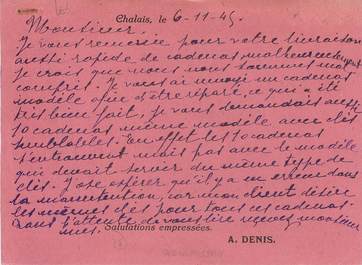 Chalais, le 6-11-45
Monsieur.
Je vous remercie pour votre livraison
aussi rapide de cadenas, malheureusement
je crois que nous nous sommes mal
compris. Je vous ai envoyé un cadenas
modèle afin d'être réparé, ce qui a été
très bien fait, je vous demandais aussi
10 cadenas même modèle avec clés
semblables. En effet les 10 cadenas
s'entrouvrent mais pas avec le modèle
qui devait servir du même type de
clés. J'ose espérer qu'il y a eu erreur dans
la manutention, car mon client désire
les mêmes clés pour tous ces cadenas.
Dans l'attente de vous lire recevez monsieur
mes Salutations empressées.
A. DENIS.